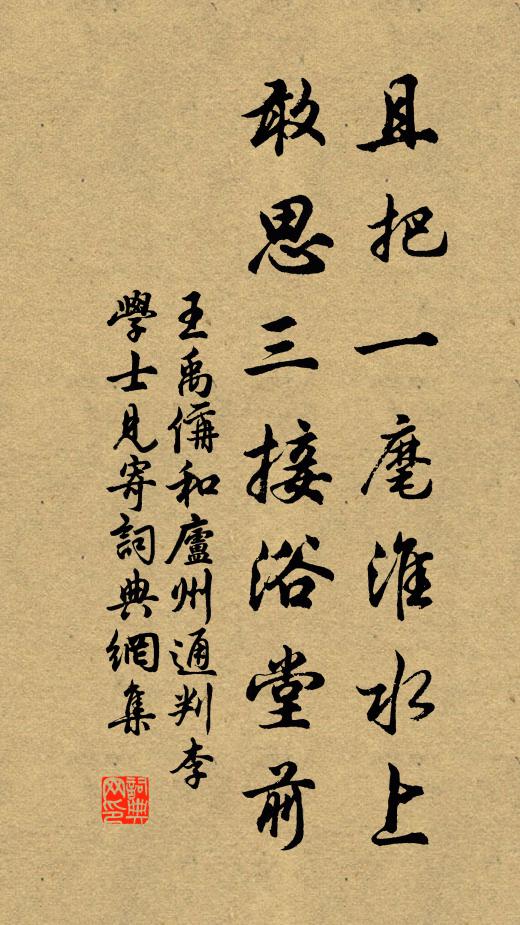 且把一麾淮水上
敢思三接浴堂前
王禹偁和廬州通判李
學士見寄詞典網集
詞典網印